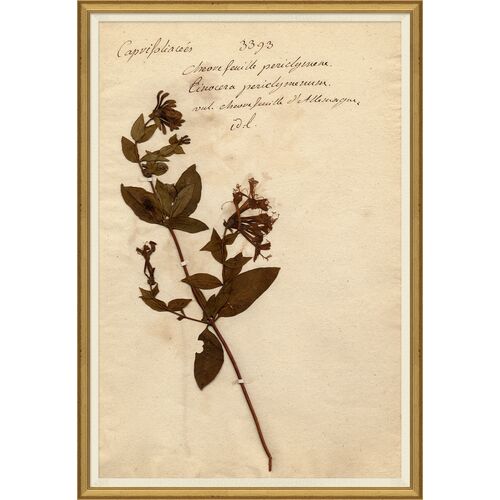 Caprifoliacées 3393
chevrefeuille periclymene.
Lonocera periclymenum.
vul. chevrefeuille d'Allemagne.
id. l.